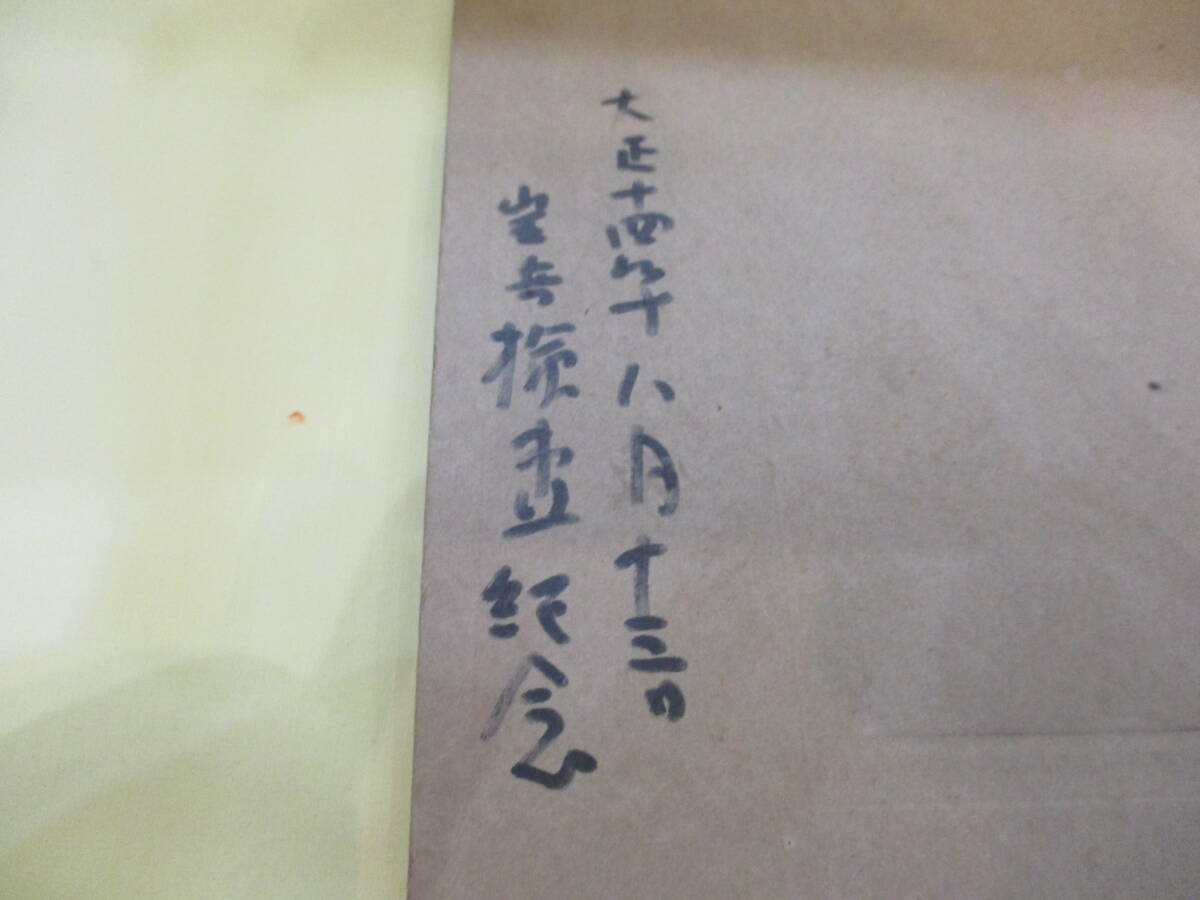 大正十四年八月十三日
兵検査紀念